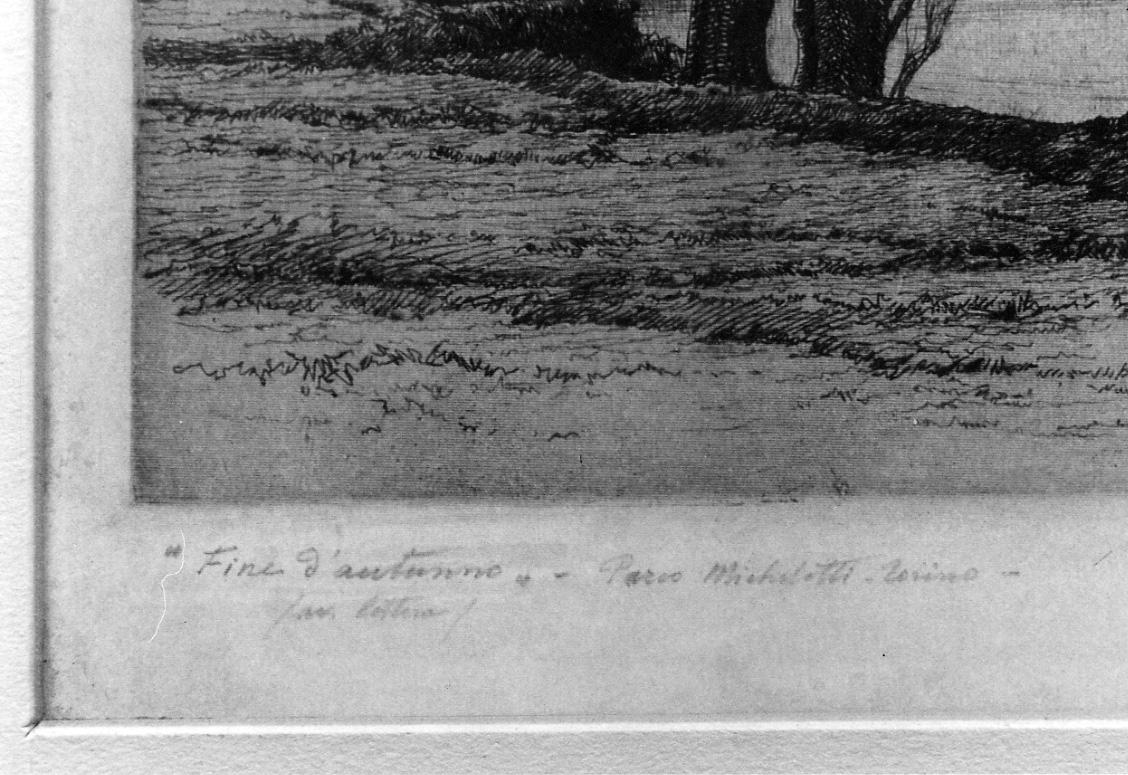 "Fine d'autunno„ - Parco Michelotti - Torino -
/av.